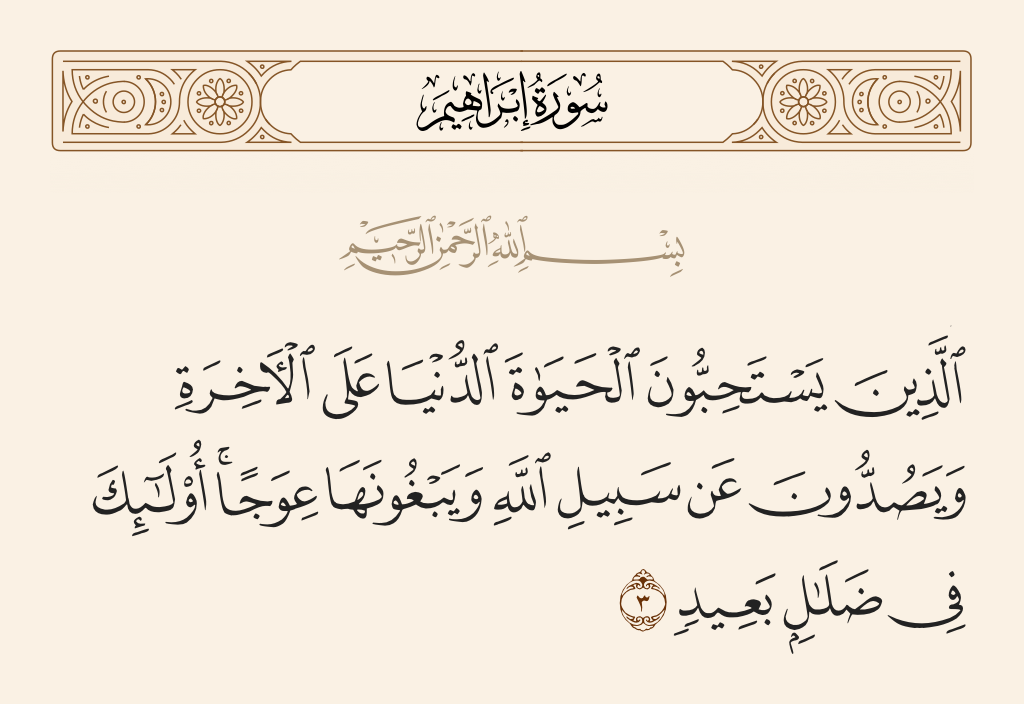 سُورَةُ إِبْرَاهِيمَ
بِسْمِ ٱللَّهِ ٱلرَّحْمَٰنِ ٱلرَّحِيمِ
ٱلَّذِينَ يَسْتَحِبُّونَ ٱلْحَيَوٰةَ ٱلدُّنْيَا عَلَى ٱلْـَٔاخِرَةِ
وَيَصُدُّونَ عَن سَبِيلِ ٱللَّهِ وَيَبْغُونَهَا عِوَجًا ۚ أُو۟لَـٰٓئِكَ
فِى ضَلَـٰلٍۭ بَعِيدٍ ٣